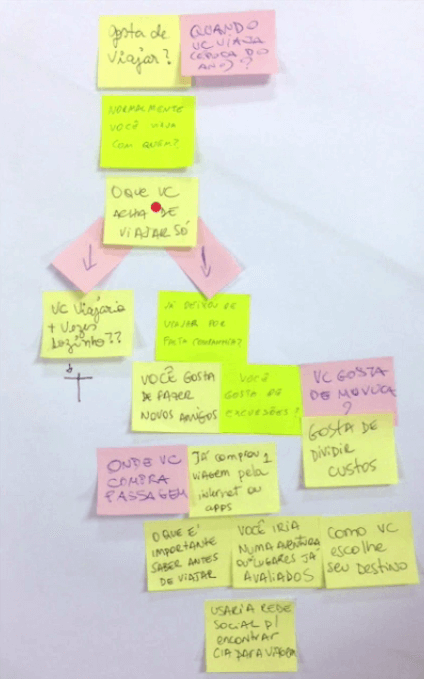 Gosta de
Viajar?
QUANDO
VC VIAJA
(EPOCA DO
ANO)?
NORMALMENTE
VOCÊ VIAJA
COM QUEM?
O QUE VC
ACHA DE
VIAJAR SÓ
VC Viajaria
+ Vezes
Sozinho??
JÁ DEIXOU DE
VIAJAR POR
FALTA COMPANHIA?
VOCÊ GOSTA
DE FAZER
NOVOS AMIGOS
VOCÊ
GOSTA DE
EXCURSÕES?
VC GOSTA
DE MUVUCA
?
GOSTA DE
DIVIDIR
CUSTOS
ONDE VC
COMPRA
PASSAGEM
JÁ comprou 1
viagem pela
internet ou
apps
O QUE É
IMPORTANTE
SABER ANTES
DE VIAJAR
VOCÊ IRIA
NUMA AVENTURA
OU LUGARES JÁ
AVALIADOS
COMO VC
escolhe
seu DESTINO
USARIA REDE
SOCIAL P/
encontrar
CIA PARA VIAGEM